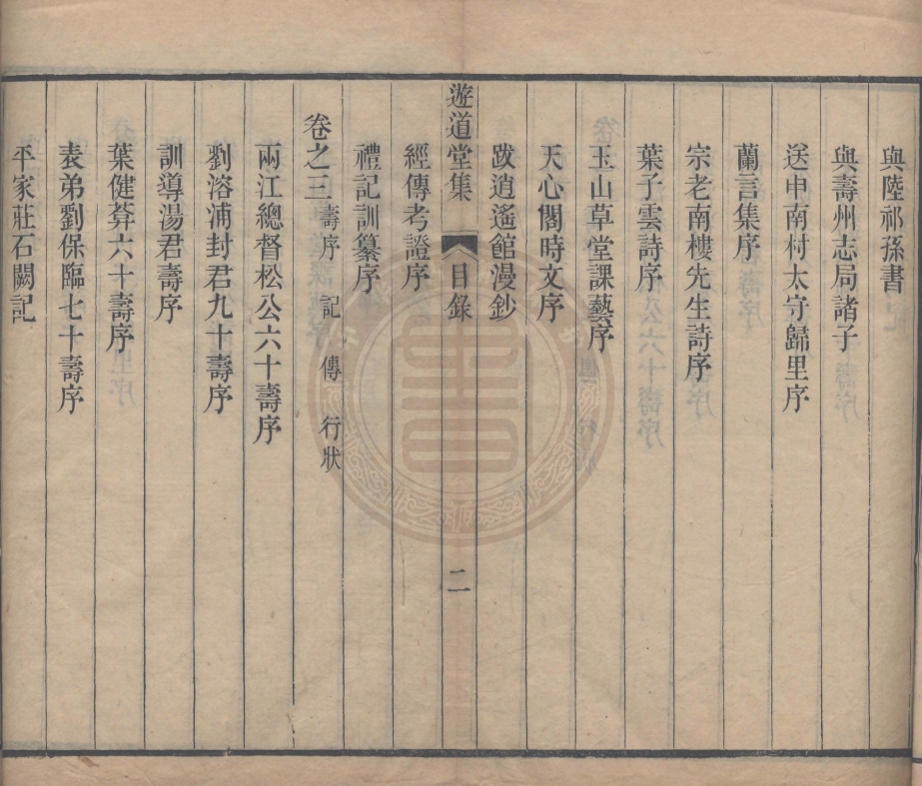 與陸祁孫書
與壽州志局諸子
送申南村太守歸里序
蘭言集序
宗老南樓先生詩序
葉子雲詩序
玉山草堂課藝序
天心閣時文序
跋逍遙館漫鈔
遊道堂集 目錄 二
經傳考證序
禮記訓纂序
卷之三 壽序 記 傳 行狀
兩江總督松公六十壽序
劉溶浦封君九十壽序
訓導湯君壽序
葉健葊六十壽序
表弟劉保臨七十壽序
平家莊石闕記